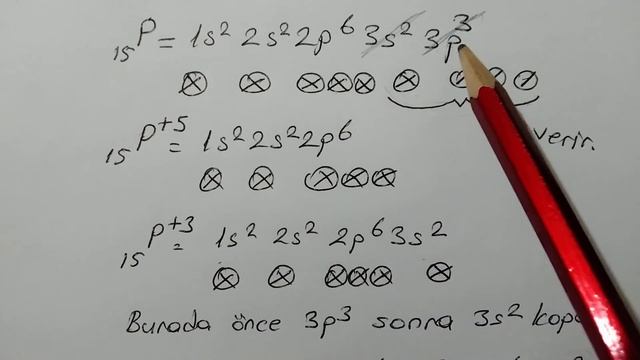 ₁₅P = 1s² 2s² 2p⁶ 3s² 3p³
verir.
₁₅P⁺⁵ = 1s² 2s² 2p⁶
₁₅P⁺³ = 1s² 2s² 2p⁶ 3s²
Burada önce 3p³ sonra 3s²